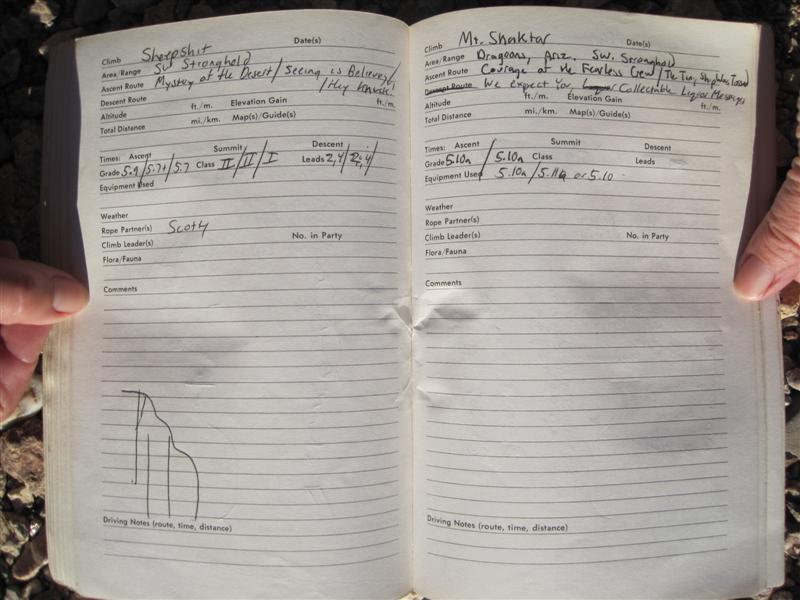 Climb Sheepshit Date(s)
Area/Range SW Stronghold
Ascent Route Mystery of the Desert / Seeing is Believing /
Descent Route / Hey
Altitude ft./m. Elevation Gain ft./m.
Total Distance mi./km. Map(s)/Guide(s)
Times: Ascent Summit Descent
Grade 5.9/5.7+/5.7 Class II/II/I Leads 2,4/
Equipment Used
Weather
Rope Partner(s) Scotty
Climb Leader(s) No. in Party
Flora/Fauna
Comments
Driving Notes (route, time, distance)
Climb Mt. Shaktar Date(s)
Area/Range Dragoons, Ariz. SW. Stronghold
Ascent Route Courage of the Fearless Crew / The Tiny Shipless Toad
Descent Route We Expect You, Collectable Liquor Messages
Altitude Elevation Gain ft./m.
Total Distance mi./km. Map(s)/Guide(s)
Times: Ascent Summit Descent
Grade 5.10a / 5.10a Class Leads
Equipment Used 5.10a / 5.11a or 5.10
Weather
Rope Partner(s)
Climb Leader(s) No. in Party
Flora/Fauna
Comments
Driving Notes (route, time, distance)